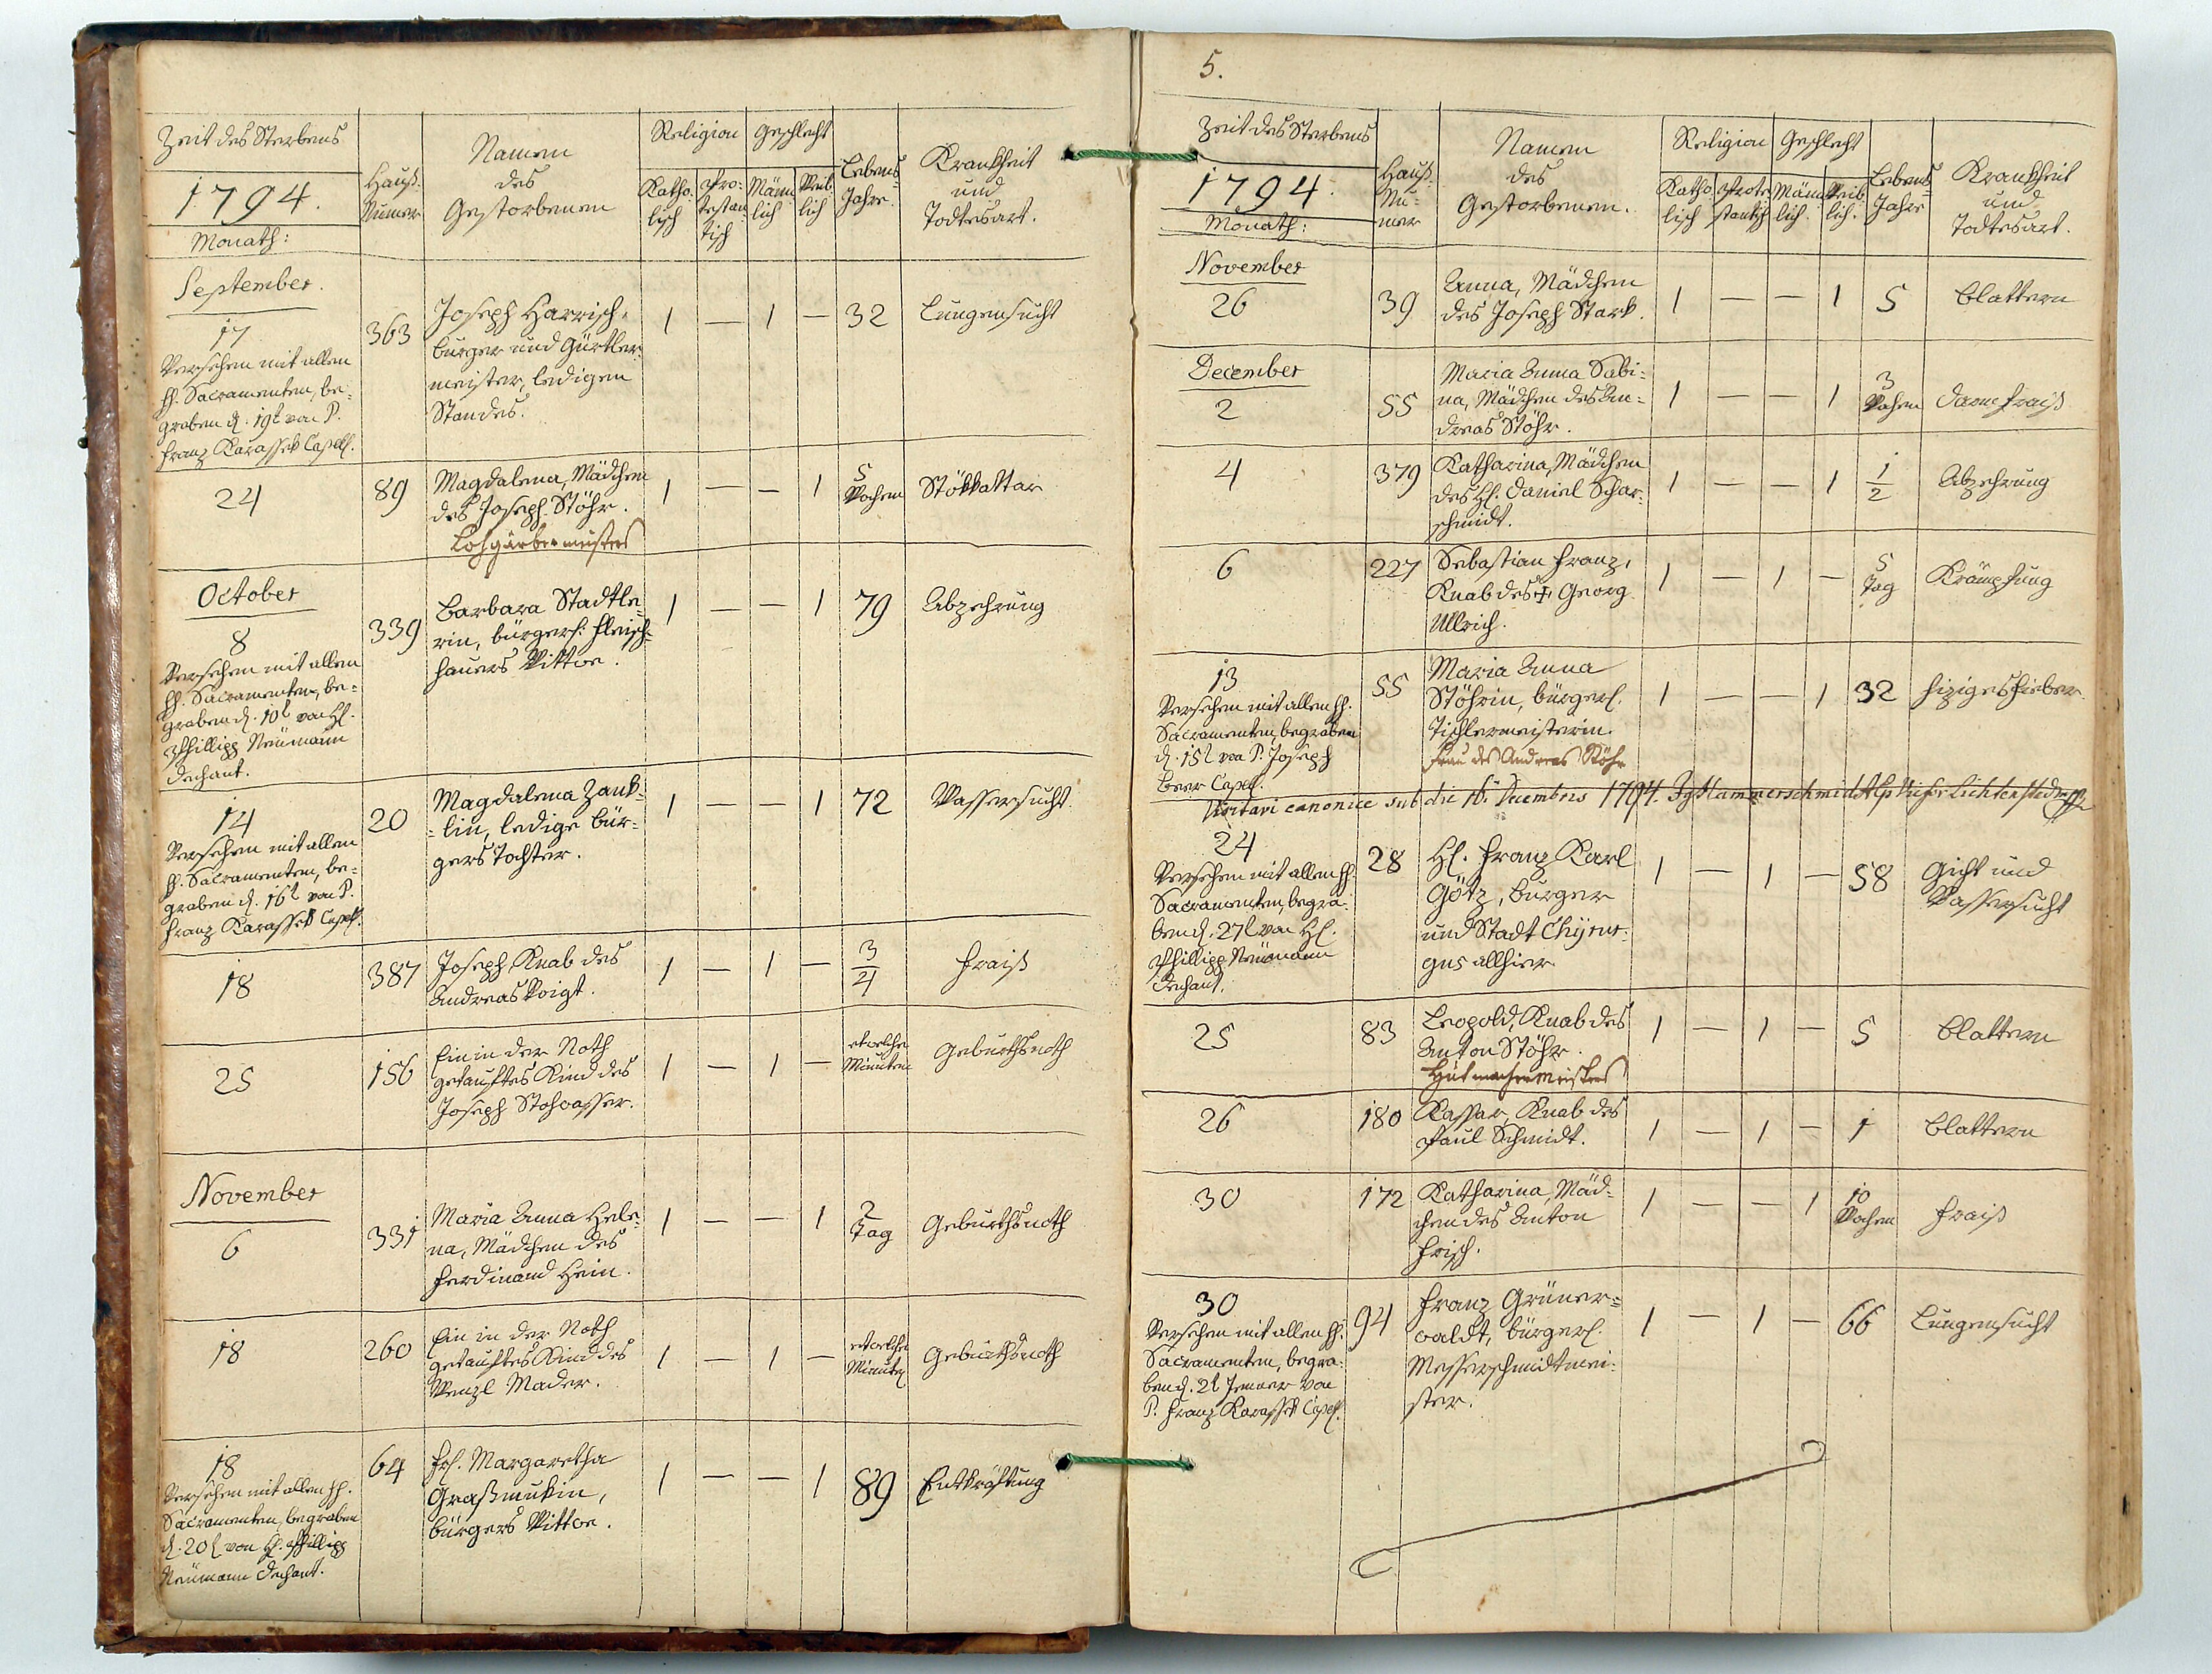 Zeit des Sterbens
1794.
Monath:
Hauß-
Numer
Namen
des
Gestorbenen
Religion
Katho-
lisch
Pro-
testan-
tisch
Geschlecht
Männ-
lich
Weib-
lich
Lebens-
Jahre.
Krankheit
und
Todtesart.
September.
17
Versehen mit allen
hh. Sacramenten, be-
graben d. 19t von P.
Franz Karassek Capell.
363
Joseph Harrisch,
burger und Gürtler-
meister, ledigen
Standes.
1 — 1 — 32 Lungensucht
24
89
Magdalena, Mädchen
des Joseph Stöhr.
Lohgärbermeisters
1 — — 1
5
Wochen
Stökkattar
October
8
Versehen mit allen
hh. Sacramenten, be-
graben d. 10t von H.
Phillipp Neümann
Dechant.
339
Barbara Stadtle-
rin, bürgerl. Fleisch-
hauers Wittwe.
1 — — 1 79 Abzehrung
14
Versehen mit allen
hh. Sacramenten, be-
graben d. 16t von P.
Franz Karassek Capell.
20
Magdalena Zank-
lin, ledige bür-
gers Tochter.
1 — — 1 72 Wassersucht.
18
387
Joseph, Knab des
Andreas Voigt.
1 — 1 — 3/4 Fraiß
25
156
Ein in der Noth
getauftes Kind des
Joseph Stohwasser.
1 — 1 —
etwelche
Minuten
Geburthsnoth
November
6
331
Maria Anna Hele-
na, Mädchen des
Ferdinand Hein.
1 — — 1
2
Tag
Geburthsnoth
18
260
Ein in der Noth
getauftes Kind des
Wenzl Mader.
1 — 1 —
etwelche
Minuten
Geburthsnoth
18
Versehen mit allen hh.
Sacramenten, begraben
d. 20t von H. Phillipp
Neümann Dechant.
64
Fr. Margaretha
Graßmukin,
bürgers Wittwe.
1 — — 1 89 Entkräftung
5.
Zeit des Sterbens
1794.
Monath:
Hauß-
Nu-
mer
Namen
des
Gestorbenen.
Religion
Katho-
lisch
Prote-
stantisch
Geschlecht
Männ-
lich.
Weib-
lich.
Lebens-
Jahre
Krankheit
und
Todtesart.
November
26
39
Anna, Mädchen
des Joseph Stark.
1 — — 1 5 Blattern
December
2
55
Maria Anna Sabi-
na, Mädchen des An-
dreas Stöhr.
1 — — 1
3
Wochen
Darmfraiß
4
379
Katharina, Mädchen
des H. Daniel Schar-
schmidt.
1 — — 1 1/2 Abzehrung
6
227
Sebastian Franz,
Knab des Georg
Ullrich.
1 — 1 —
5
Tag
Krämpfung
13
Versehen mit allen hh.
Sacramenten, begraben
d. 15t von P. Joseph
Beer Capell.
55
Maria Anna
Stöhrin, bürgerl.
Tischlermeisterin.
Frau des Andreas Stöhr
1 — — 1 32 hiziges Fieber
canonice sub die 16. Decembris 1794. Hammerschmidt
24
Versehen mit allen hh.
Sacramenten, begra-
ben d. 27t von H.
Phillipp Neümann
Dechant.
28
H. Franz Karl
Götz, Burger
und Stadt Chÿrur-
gus allhier
1 — 1 — 58 Gicht und
Wassersucht
25
83
Leopold, Knab des
Anton Stöhr.
Hutmachermeisters
1 — 1 — 5 Blattern
26
180
Kaspar, Knab des
Paul Schmidt.
1 — 1 — 1 Blattern
30
172
Katharina, Mäd-
chen des Anton
Frisch.
1 — — 1
10
Wochen
Fraiß
30
Versehen mit allen hh.
Sacramenten, begra-
ben d. 2t Jenner von
P. Franz Karassek Capell.
94
Franz Grüner-
waldt, bürgerl.
Messerschmidtmei-
ster.
1 — 1 — 66 Lungensucht